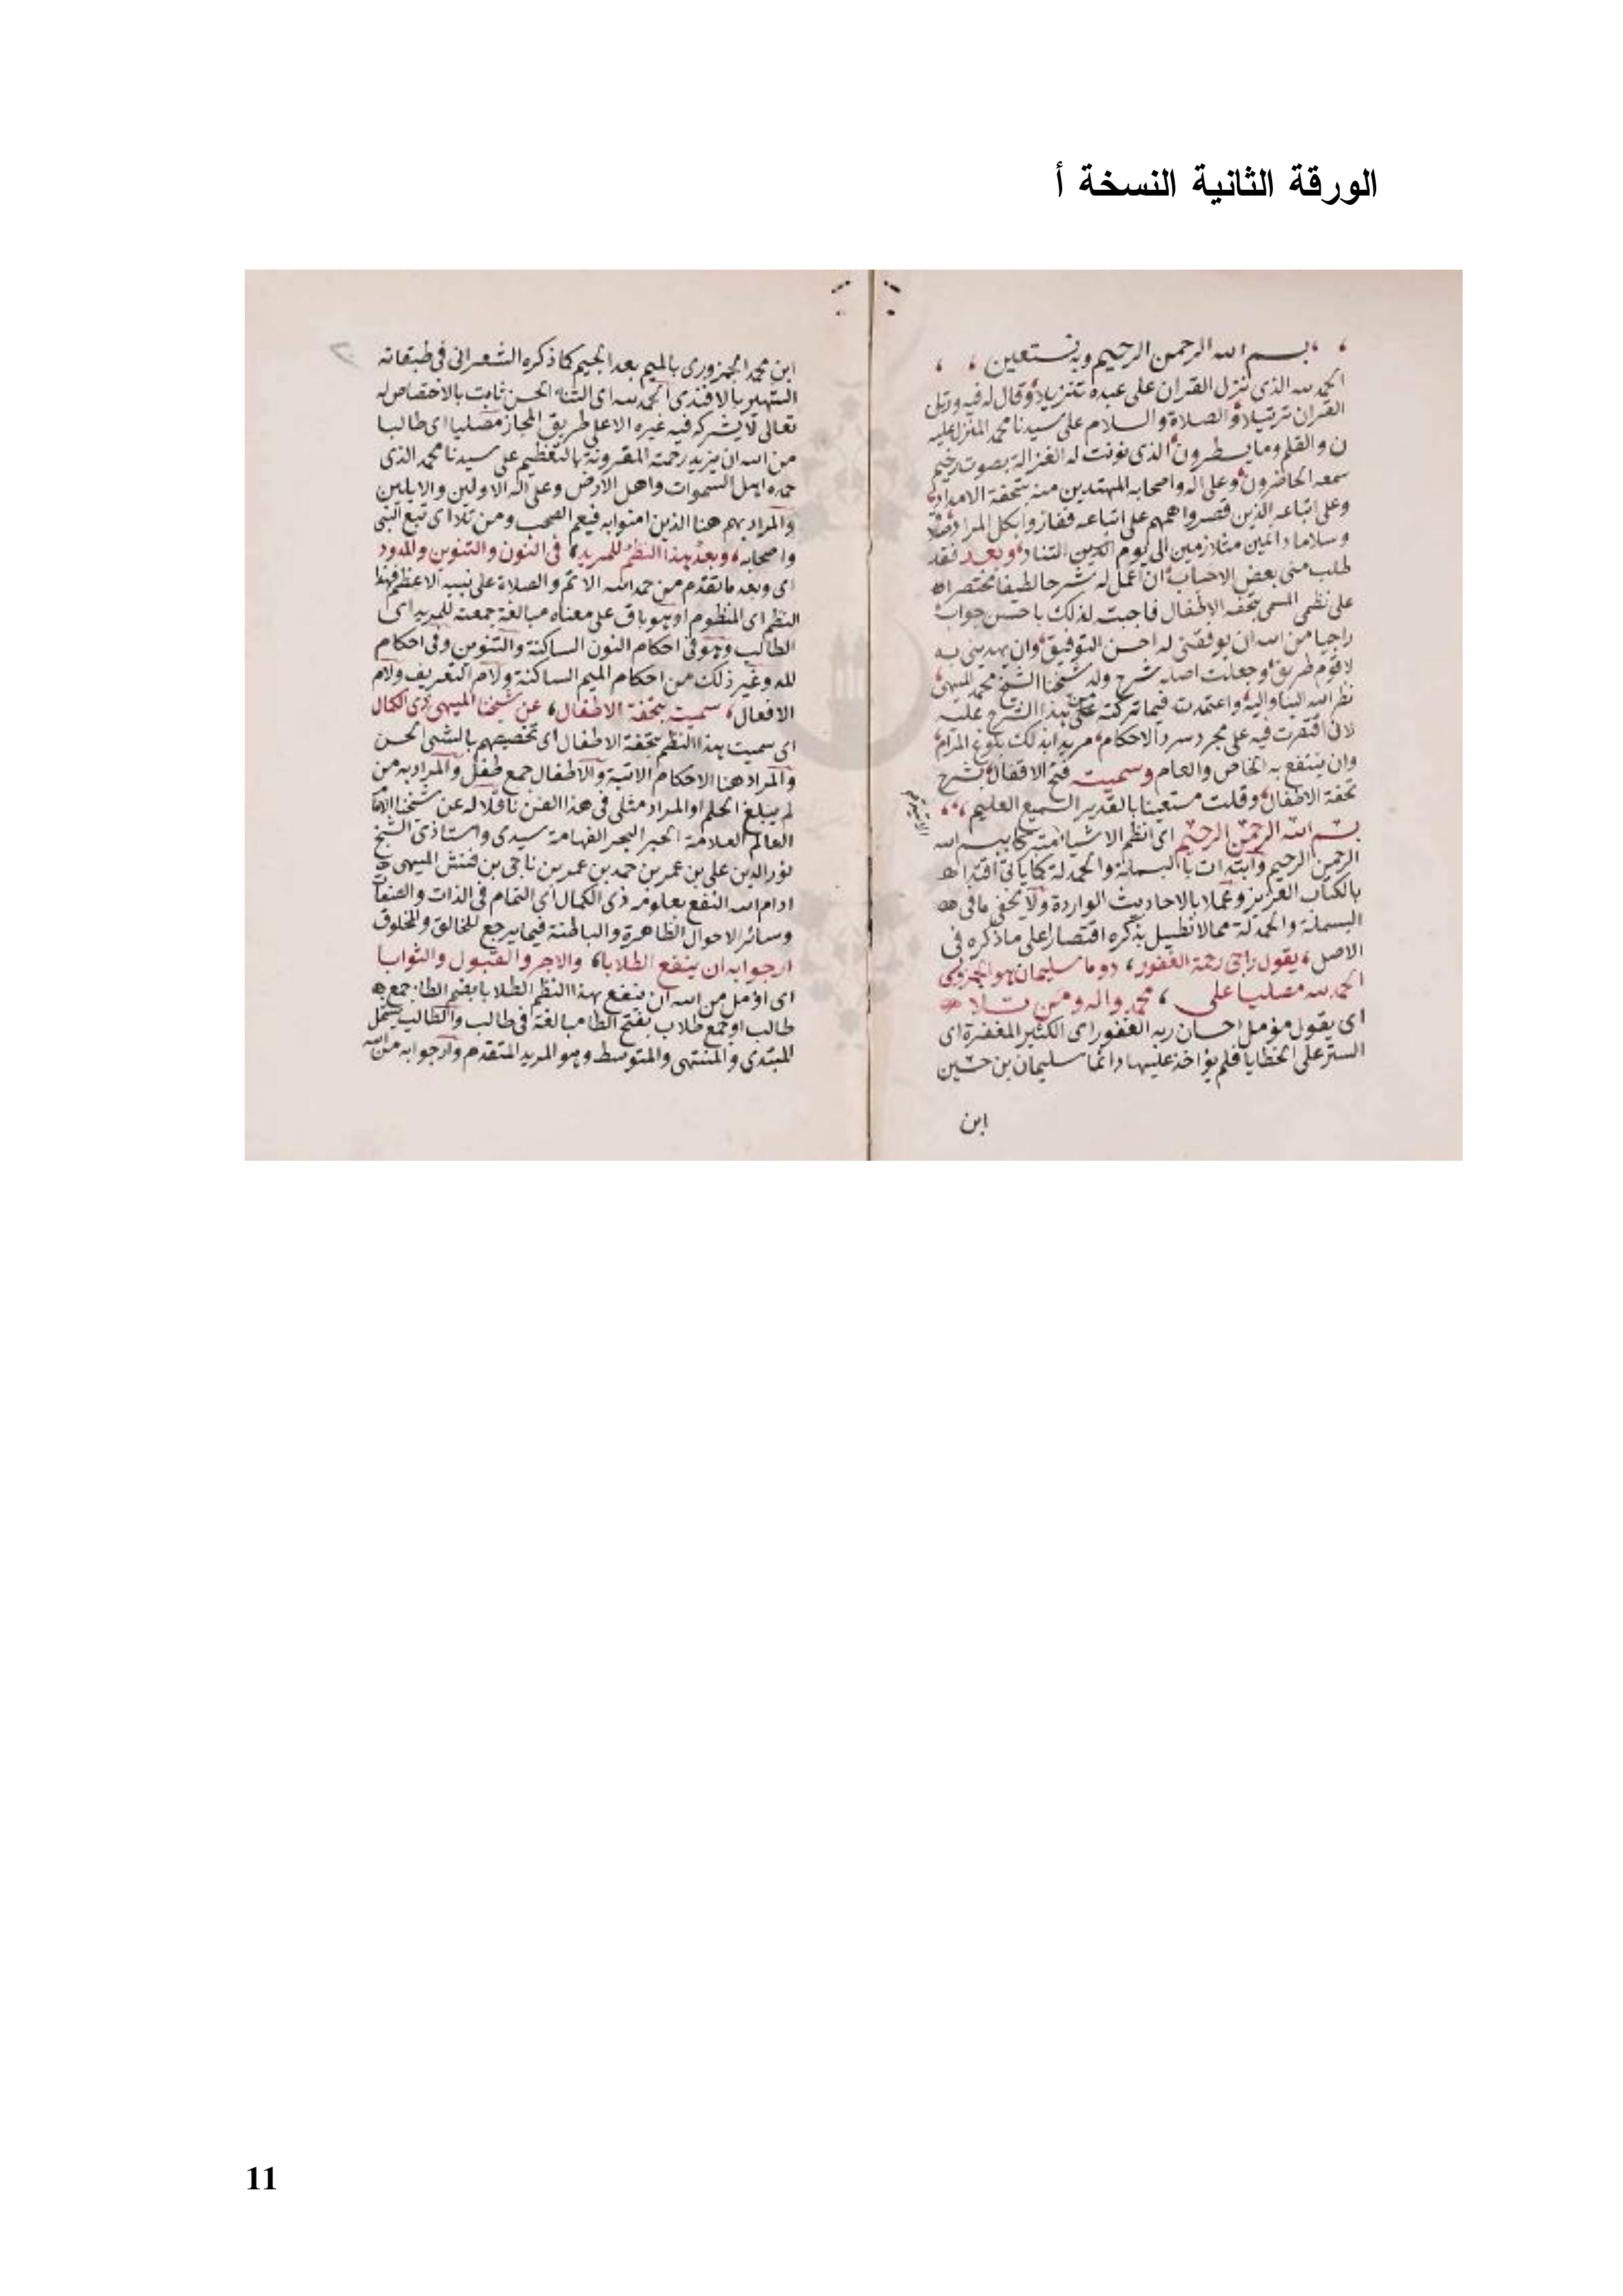 الورقة الثانية النسخة أ
بسم الله الرحمن الرحيم وبه نستعين
الحمد لله الذى نزل القران على عبده تنزيلا وقال له فيه ورتل
القران ترتيلا والصلاة والسلام على سيدنا محمد المنزل عليه
ن والقلم وما يسطرون الذى نونت له الغزالة بصوت رخيم
سمعه الحاضرون وعلى اله واصحابه المهتدين منه بتحفة الامداد
وعلى اتباعه الذين قصروا هممهم على اتباعه ففازوا بكل المراد صلاة
وسلاما دائمين متلازمين الى يوم الدين التناد وبعد فقد
طلب منى بعض الاحباب ان اعمل له شرحا لطيفا مختصرا
على نظمى المسمى بتحفة الاطفال فاجبته لذلك باحسن جواب
راجيا من الله ان يوفقنى له احسن التوفيق وان يهدينى به
لاقوم طريق وجعلت اصله شرح ولد شيخنا الشيخ محمد الميهى
نظر الله الينا واليه واعتمدت فيما تركته من هذا الشرح عليه
لانى اقتصرت فيه على مجرد سرد الاحكام مريدا بذلك بلوغ المرام
وان ينتفع به الخاص والعام وسميته فتح الاقفال بشرح
تحفة الاطفال وقلت مستعينا بالقدير السميع العليم
بسم الله الرحمن الرحيم اى انظم الاشيا متبركا ببسم الله
الرحمن الرحيم وابتدات بالبسملة والحمدلة كما ياتى اقتداا
بالكتاب العزيز وعملا بالاحاديث الواردة ولا يخفى ما فى
البسملة والحمدلة مما لا نطيل بذكره اقتصارا على ما ذكره فى
الاصل يقول راجى رحمة الغفور دوما سليمان هو الجمزورى
الحمد لله مصليا على محمد واله ومن تلا
اى يقول مؤمل احسان ربه الغفور اى الكثير المغفرة اى
الستر على الخطايا فلم يؤاخذ عليها دائما سليمان بن حسين
ابن
ابن محمد الجمزورى بالميم بعد الجيم كما ذكره الشعرانى فى طبقاته
الشهير بالافندى الحمد لله اى الثناء الحسن ثابت بالاختصاص له
تعالى لا يشركه فيه غيره الا على طريق المجاز مصليا اى طالبا
من الله ان يزيد رحمته المقرونة بالتعظيم على سيدنا محمد الذى
حمده اهل السموات واهل الارض وعلى اله الاولين والايلين
والمراد بهم هنا الذين امنوا به فيعم الصحب ومن تلا اى تبع النبى
واصحابه وبعد هذا النظم للمريد فى النون والتنوين والمدود
اى وبعد ما تقدم من حمد الله الاتم والصلاة على نبيه الاعظم فهذا
النظم اى المنظوم او هو باق على معناه مبالغة جمعته للمريد اى
الطالب وهو فى احكام النون الساكنة والتنوين وفى احكام
المد وغير ذلك من احكام الميم الساكنة ولام التعريف ولام
الافعال سميته بتحفة الاطفال عن شيخنا الميهى ذى الكمال
اى سميت هذا النظم بتحفة الاطفال اى تخصيصهم بالشئ الحسن
والمراد هنا الاحكام الاتية والاطفال جمع طفل والمراد به من
لم يبلغ الحلم او المراد مثلى فى هذا الفن ناقلا له عن شيخنا الامام
العالم العلامة الحبر البحر الفهامة سيدى واستاذى الشيخ
نور الدين على بن عمر بن حمد بن عمر بن ناجى بن فنش الميهى
ادام الله النفع بعلومه ذى الكمال اى التمام فى الذات والصفات
وسائر الاحوال الظاهرة والباطنة فيما يرجع للخالق والمخلوق
ارجو به ان ينفع الطلابا والاجر والقبول والثوابا
اى اؤمل من الله ان ينفع بهذا النظم الطلابا بضم الطا جمع
طالب او جمع طلاب بفتح الطا مبالغة فى طالب والطالب يشمل
المبتدى والمنتهى والمتوسط وهو المريد المتقدم وارجو ابه من الله
11